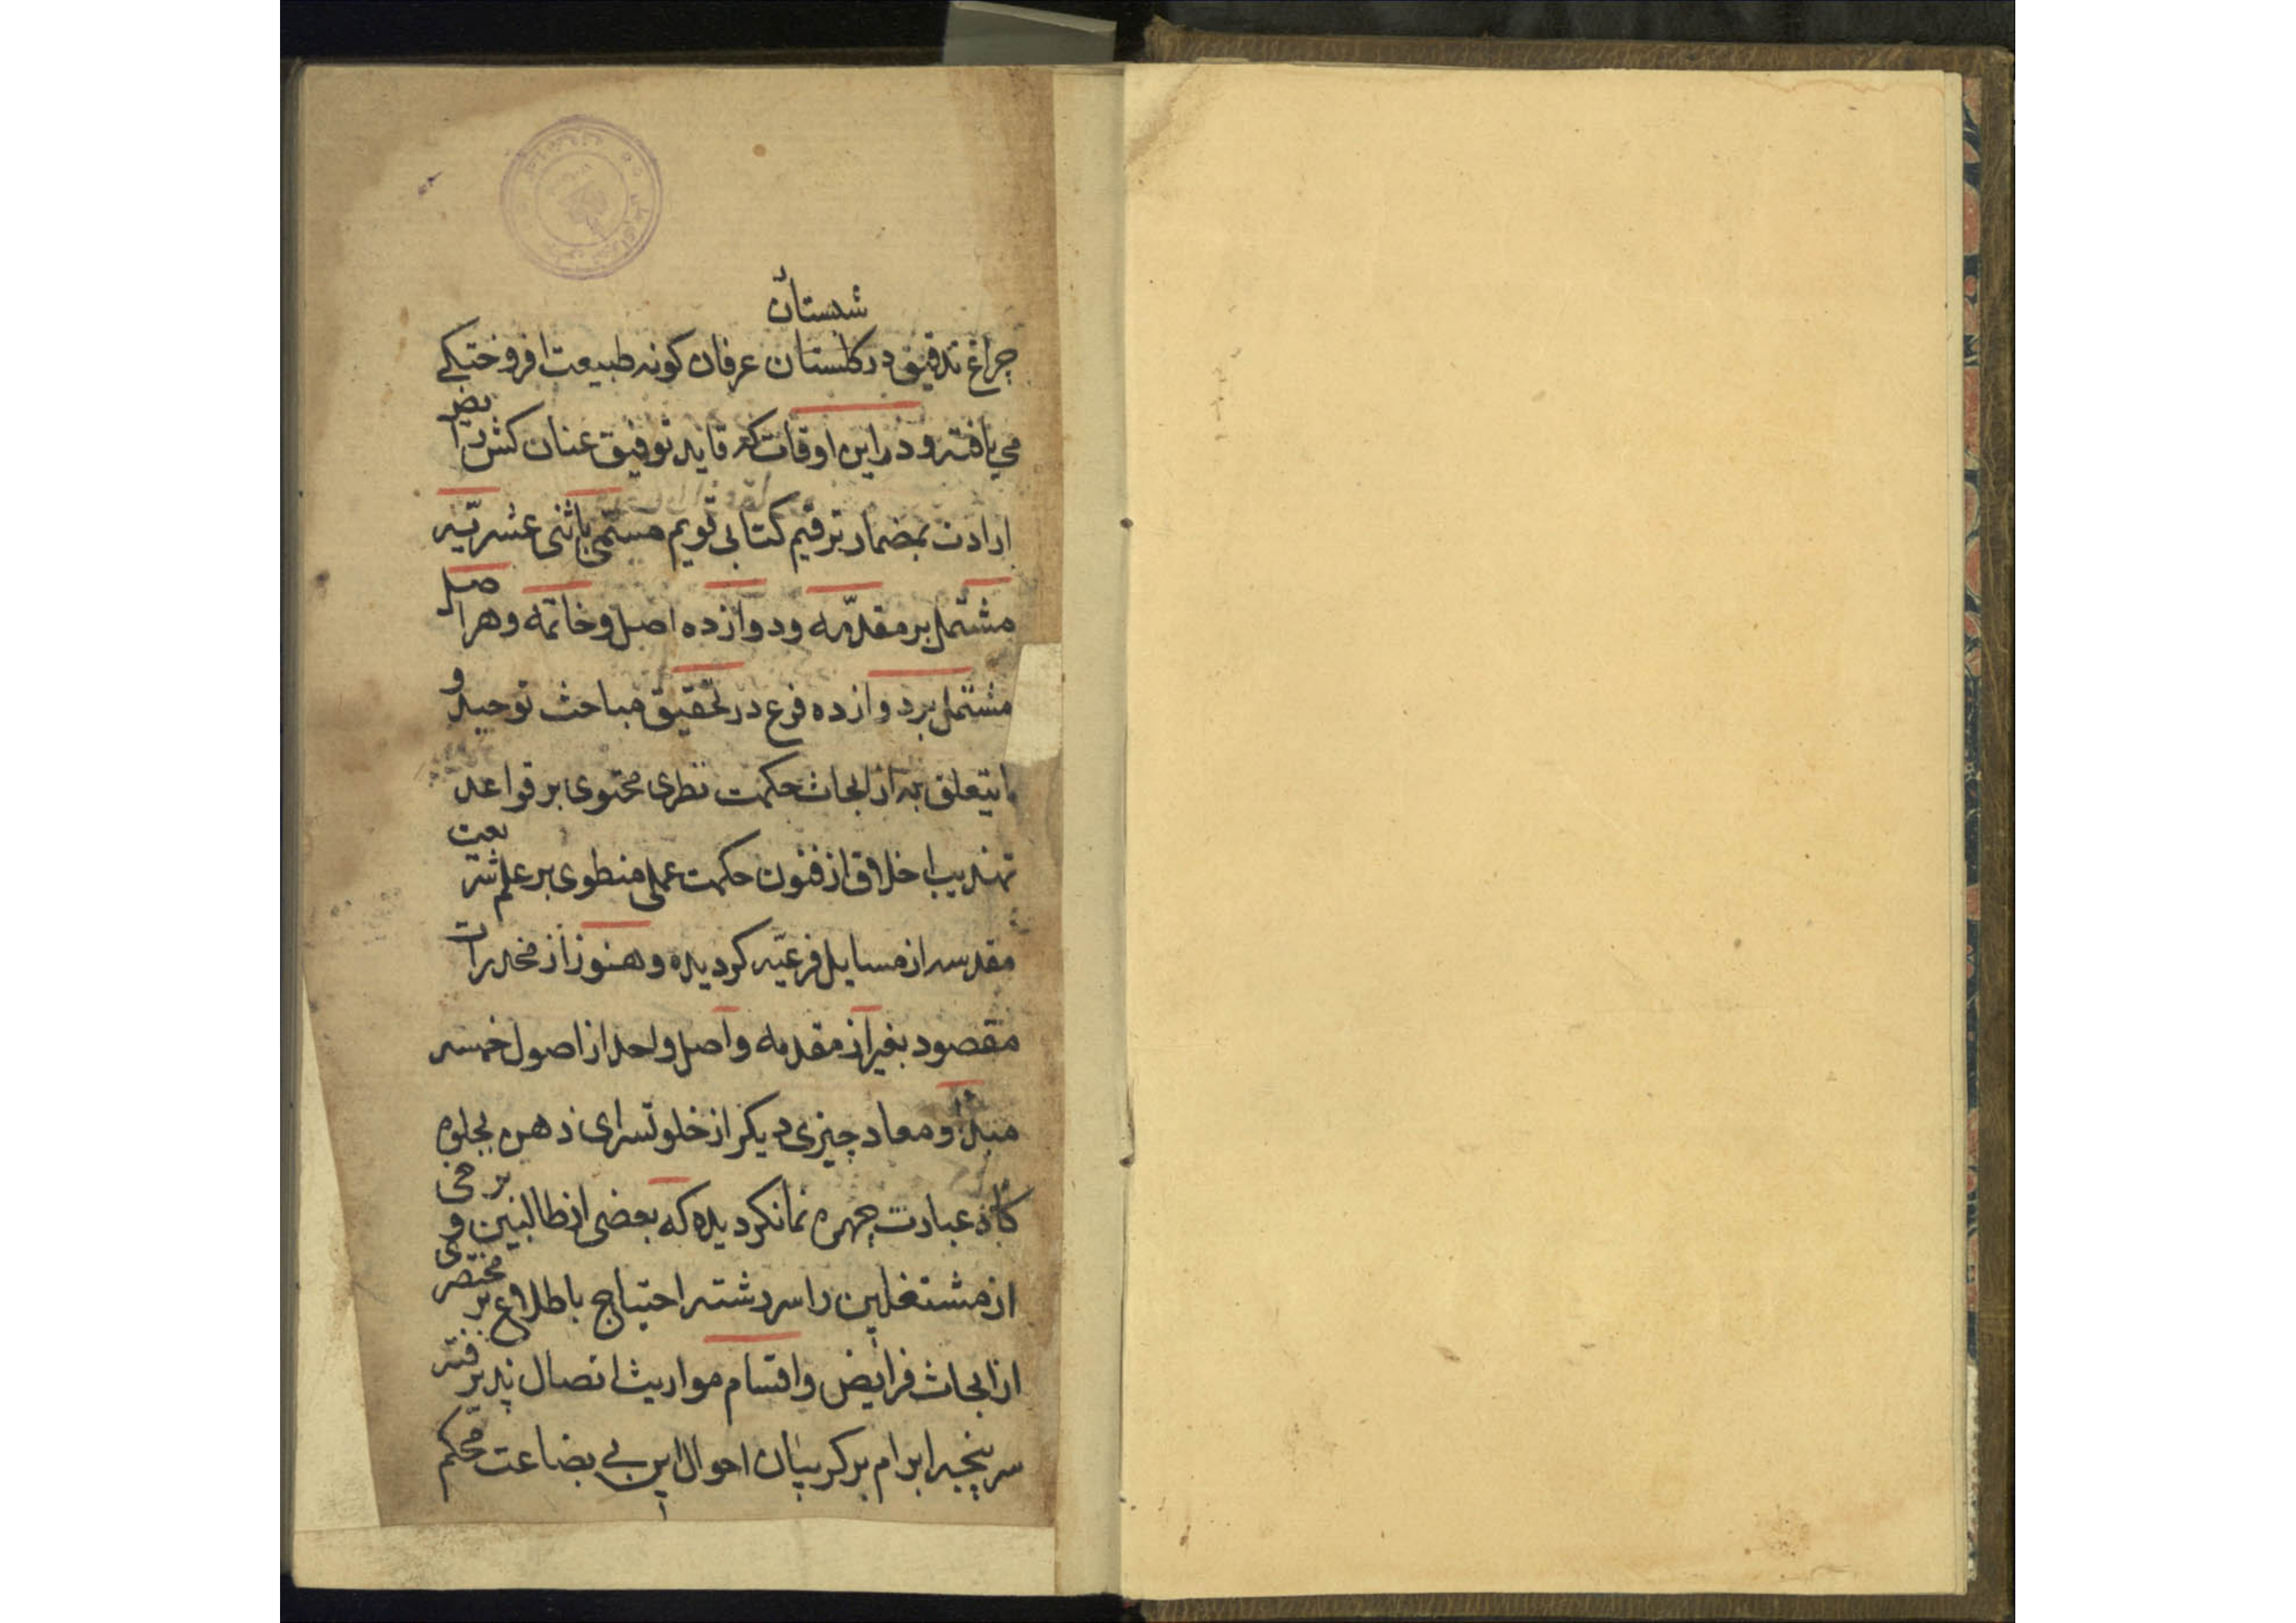 شبستان
چراغ تدقیق در کلستان عرفان کونه طبیعت افروختکی
می یافته و در این اوقات که قاید توفیق عنان کش رایض
ارادت بمضمار ترقیم کتابی قویم مسمّی باثنی عشریّه
مشتمل بر مقدّمه و دوازده اصل و خاتمه و هر اصل
مشتمل بر دوازده فرع در تحقیق مباحث توحید و
ما یتعلق به از ابحاث حکمت نظری محتوی بر قواعد
تهذیب اخلاق از فنون حکمت عملی منطوی بر علم شریعت
مقدسه از مسایل فرعیّه کردیده و هنوز از مخدرات
مقصود بغیر از مقدمه و اصل واحد از اصول خمسه
مبدأ و معاد چیزی دیکر از خلوتسرای ذهن بجلوه
کاه عبارت چهره نما نکردیده که بعضی از طالبین و برخی
از مشتغلین را سررشته احتیاج باطلاع بر مختصری
از ابحاث فرایض و اقسام مواریث اتصال پذیرفته
سرپنجه ابرام بر کریبان احوال این بی بضاعت محکم